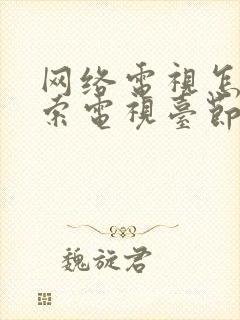 网络電視怎
索電視臺節
魏旋君